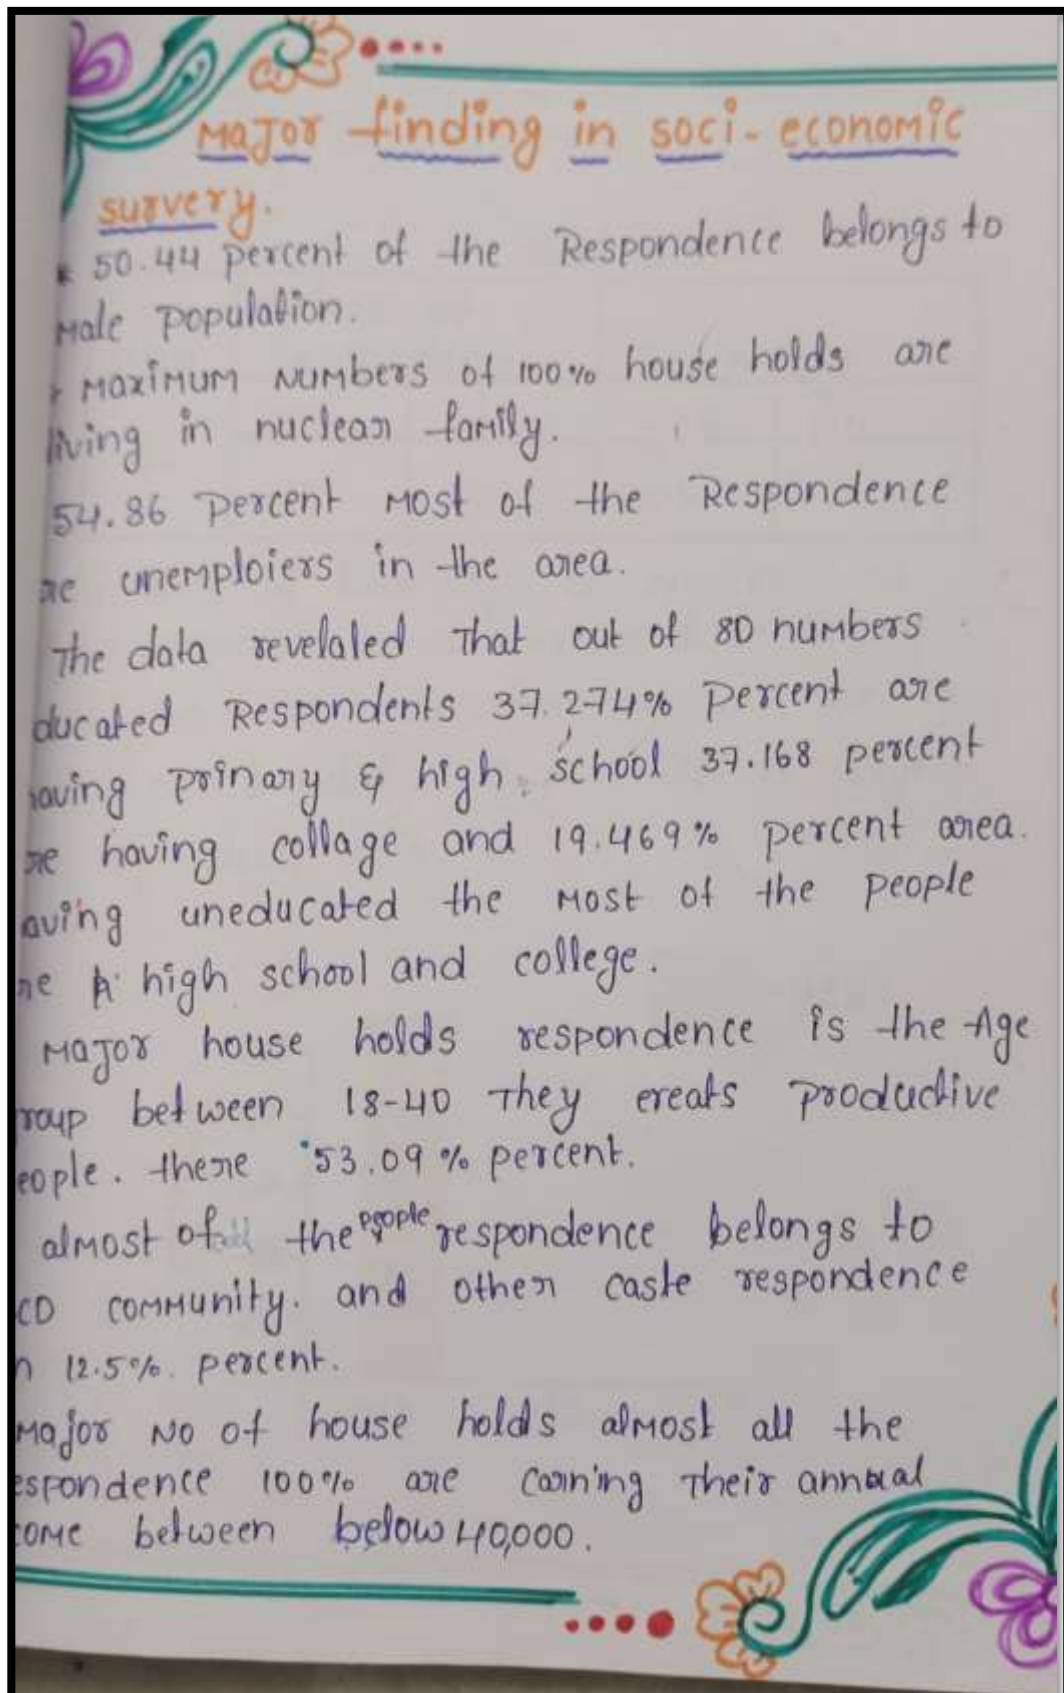 Major finding in soci-economic
survery.
* 50.44 percent of the Respondence belongs to
Male population.
Maximum numbers of 100% house holds are
living in nuclear family.
54.86 percent most of the Respondence
re unemploiers in the area.
The data revelaled that out of 80 numbers
ducated Respondents 37.274% percent are
aving primary & high school 37.168 percent
re having collage and 19.469% percent area.
aving uneducated the most of the people
re high school and college.
Major house holds respondence is the Age
roup between 18-40 They ereats productive
eople. there 53.09% percent.
almost of all the people respondence belongs to
CD community. and other caste respondence
n 12.5%. percent.
Major No of house holds almost all the
espondence 100% are earning their annual
come between below 40,000.